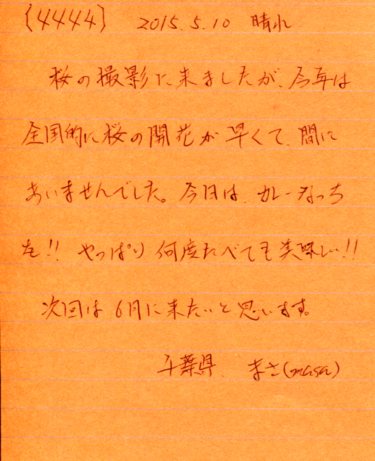 {4444} 2015.5.10 晴れ
桜の撮影に来ましたが、今年は
全国的に桜の開花が早くて、間に
あいませんでした。今日は、カレーなっち
を!! やっぱり何度たべても美味しい!!
次回は6月に来たいと思います。
千葉県 まさ(masa)